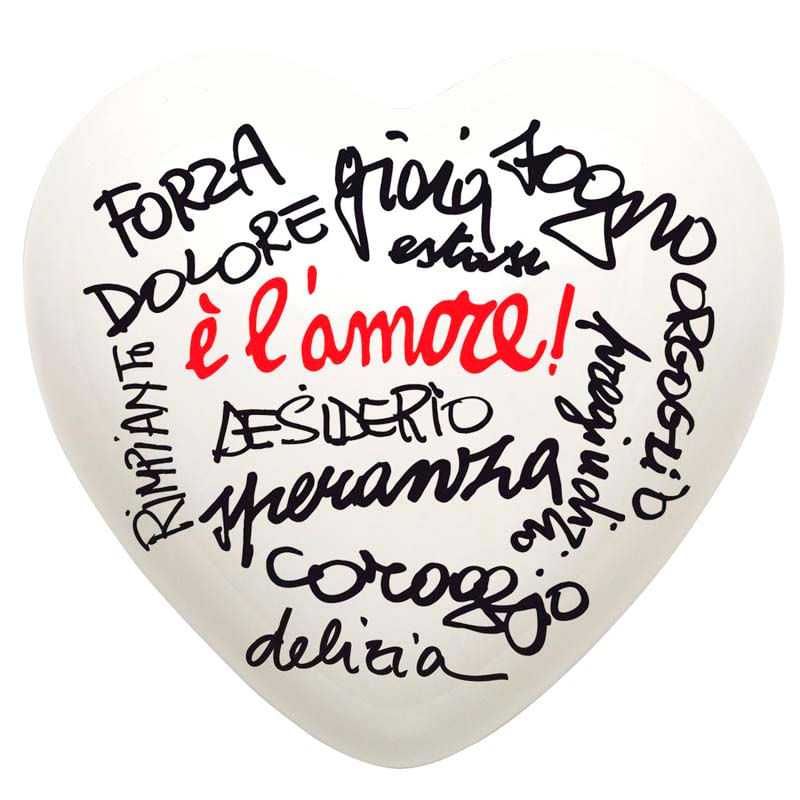 FORZA
gioia
sogno
DOLORE
estasi
è l'amore!
ORGOGLIO
RIMPIANTO
DESIDERIO
pregiudizio
speranza
coraggio
delizia